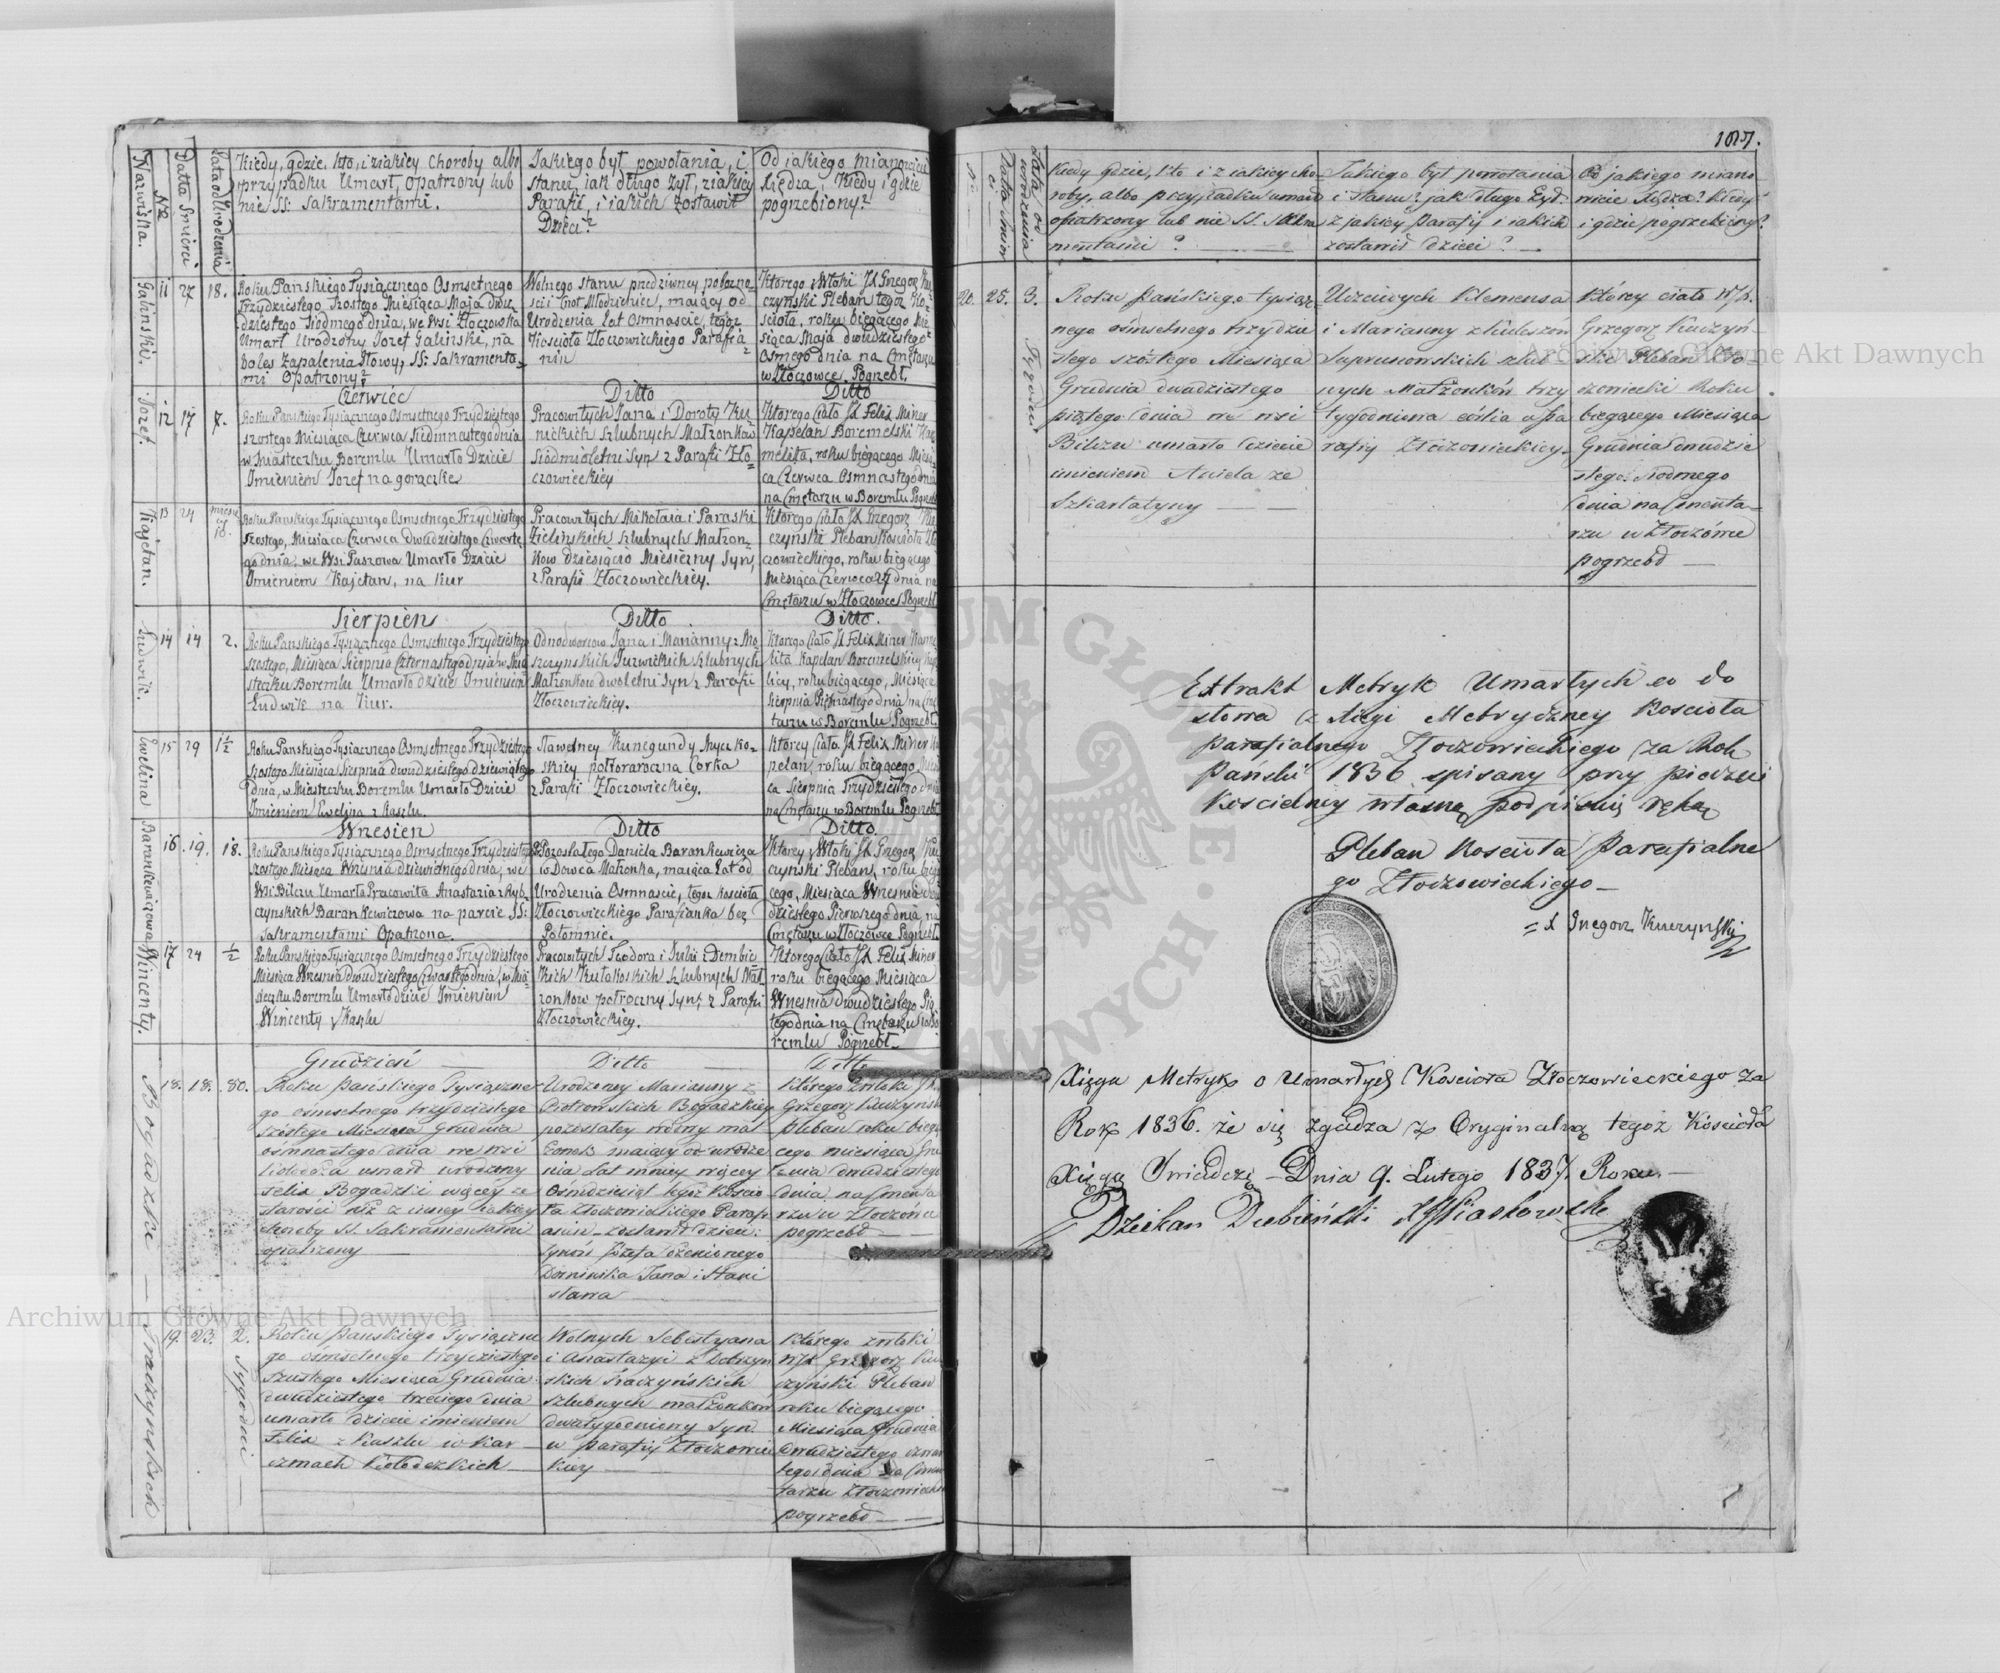 Nazwiska.
Nro
Datta Śmierci
Lata od Urodzenia
Kiedy, gdzie, kto, i z iakiey Choroby albo
przypadku Umarł, Opatrzony lub
nie SS: Sakramentami.
Jakiego był powołania, i
stanu, iak długo żył, z iakiey
Parafii, i iakich zostawił
Dzieci?
Od iakiego mianowicie
Xiędza, Kiedy i gdzie
pogrzebiony?
Galiński.
11 27 18.
Roku Pańskiego Tysiącznego Osmsetnego
Trzydziestego Szostego Miesiąca Maja dwu
dziestego Siodmego dnia, we Wsi Złoczowka
Umarł Urodzony Jozef Galiński, na
boles Zapalenia Głowy, SS: Sakramenta-
mi Opatrzony
Wolnego stanu
Młodzieniec, maiący od
Urodzenia Lat Osmnascie, tegoz
Kościoła Złoczowieckiego Parafia
nin
Ktorego zwłoki JX Grzegorz Ku
czyński Pleban tegoz Ko
scioła, roku biegącego Mie
siąca Maja dwudziestego
Osmego dnia na Cmętarzu
w Złoczowce Pogrzebł.
Czerwiec Ditto Ditto
Jozef.
12 17 7.
Roku Pańskiego Tysiącznego Osmsetnego Trzydziestego
szostego Miesiąca Czerwca Siedmnastego dnia
w Miasteczku Boremlu Umarło Dziecie
Imieniem Jozef na gorączkę
Pracowitych Jana i Doroty Ku
nickich Szlubnych Małzonkow
Siodmioletni Syn z Parafii Zło
czowieckiey
Ktorego Ciało JX Felix Miner
Kapelan Boremelski Kar
melita, roku biegącego Miesią
ca Czerwca Osmnastego dnia
na Cmętarzu w Boremlu Pogrzebł
Kajetan.
13 24 miesię cy 10.
Roku Pańskiego Tysiącznego Osmsetnego Trzydziestego
Szostego, Miesiąca Czerwca Dwudziestego Czwarte
go dnia, we Wsi Paszowa Umarło Dziecie
Imieniem Kajetan, na kur
Pracowitych Mikołaia i Paraski
Zielińskich Szlubnych Małzon
kow dziesięcio Miesięzny Syn,
z Parafii Złoczowieckiey.
Ktorego Ciało JX Grzegorz Ku
czyński Pleban Kościoła Zło
czowieckiego, roku biegącego
Miesiąca Czerwca 27 dnia na
Cmętarzu w Złoczowce Pogrzebł
Sierpień Ditto Ditto.
Ludwik.
14 14 2.
Roku Pańskiego Tysiącznego Osmsetnego Trzydziestego
Szostego, Miesiąca Sierpnia Czternastego dnia w Mia
steczku Boremlu Umarło dziecie Imieniem
Ludwik na Kur.
Odnodworcow Jana i Marianny z Mo
szczynskich Jurwickich Szlubnych
Małzonkow dwoletni Syn z Parafii
Złoczowieckiey.
Ktorego Ciało JX Felix Miner Karme
lita Kapelan Boremelskiey Kap
licy, roku biegącego, Miesiąca
Sierpnia Piętnastego dnia na Cmę
tarzu w Boremlu Pogrzebł.
Ewelina
15 29 1½
Roku Pańskiego Tysiącznego Osmsetnego Trzydziestego
Szostego Miesiąca Sierpnia dwudziestego dziewiątego
dnia, w Miasteczku Boremlu Umarło Dziecie
Imieniem Ewelina z Kaszlu.
Sławetney Kunegundy
skiey połtoraroczna Corka
z Parafii Złoczowieckiey.
Ktorey Ciało JX Felix Miner Ka
pelan, roku biegącego, Miesią
ca Sierpnia Trzydziestego dnia
na Cmętarzu w Boremlu Pogrzebł
Wrzesień Ditto Ditto
Barankiewiczowa
16. 19. 18.
Roku Pańskiego Tysiącznego Osmsetnego Trzydziestego
szostego Miesiąca Września dziewiętnego dnia, we
Wsi Bilczu Umarła Pracowita Anastazia z Ryb
czynskich Barankiewiczowa na parcie SS:
Sakramentami Opatrzona.
Pozostałego Daniela Barankiewicza
Wdowca Małzonka, maiąca Lat od
Urodzenia Osmnascie, tegoz kościoła
Złoczowieckiego Parafianka bez
Potomnie.
Ktorey Zwłoki JX Grzegorz Ku
czynski Pleban, roku bieg
cego, Miesiąca Wrzesnia dwu
dziestego Pierwszego dnia, na
Cmętarzu w Złoczowce Pogrzebł.
Wincenty.
17 24 ½
Roku Pańskiego Tysiącznego Osmsetnego Trzydziestego
Miesiąca Wrzesnia Dwudziestego Czwartego dnia, w Mia
steczku Boremlu Umarło dziecie Imieniem
Wincenty z Kaszlu
Pracowitych Teodora i Julii z Dembic
kich Kułakoskich Szlubnych Mał
zonkow połroczny Syn, z Parafii
Złoczowieckiey.
Ktorego Ciało JX Felix Miner
roku biegącego Miesiąca
Wrzesnia Dwudziestego Pią
tego dnia na Cmętarzu w Bo
remlu Pogrzebł.
Grudzień Ditto Ditto
Bogadzki
18. 18. 80.
Roku Pańskiego Tysiączne
go ośmsetnego trzydziestego
szóstego Miesiąca Grudnia
ośmnastego dnia we wsi
umarł urodzony
Felix Bogadzki więcey ze
starości niż z inney iakiey
choroby SS. Sakramentami
opatrzony
Urodzoney Marianny z
Piotrowskich Bogadzkiey
pozostałey wdowy mał
żonek maiący od urodze
nia lat mniey więcey
Ośmdziesiąt tegoż Koscio
ła Złoczowieckiego Parafi
anin zostawił dzieci:
synów Józefa żenionego
Dominika Jana i Stani
sława
którego zwłoki JX
Grzegorz Kuczyński
pleban roku bieżą
cego miesiąca Gru
dnia dwudziestego
dnia na Cmenta
rzu w Złoczowce
pogrzebł
Traczyńskich
19. 23. 2. Tygodni
Roku pańskiego Tysiączne
go ośmsetnego trzydziestego
szóstego Miesiąca Grudnia
dwudziestego trzeciego dnia
umarło dziecie imieniem
Felix z kaszlu w kar
czmach
Wolnych Sebestyana
i Anastazyi z Dobrzyń
skich Traczyńskich
szlubnych małżonków
dwutygodniowy Syn
w parafiy Złoczowiec
kiey
którego zwłoki
WJX Grzegorz Ku
czyński Pleban
roku bieżącego
Miesiąca Grudnia
dwudziestego czwar
tego dnia na Cmen
tarzu Złoczowieckim
pogrzebł
187.
Nro
Datta Śmier ci
Lata od urodzenia
Kiedy gdzie, kto i z iakiey cho-
roby, albo przypadku umarł
opatrzony lub nie SS. Sakra
mentami?
Jakiego był powołania
i stanu? jak długo żył.
z jakiey Parafiy i iakich
zostawił dzieci?
Od jakiego miano
wicie Xiędza? Kiedy
i gdzie pogrzebiony?
20. 25. 3. Tygodni
Roku Pańskiego tysiącz
nego ośmsetnego trzydzie
stego szóstego Miesiąca
Grudnia dwudziestego
piątego dnia we wsi
Bilczu umarło dziecie
imieniem Aniela ze
Szkarlatyny
Uczciwych Klemensa
i Marianny z Kuleszów
Suprunowskich szlub
nych Małżonków trzy
tygodniowa córka z pa
rafiy Złoczowieckiey.
Którey ciało WJX.
Grzegorz Kuczyń
ski Pleban Zło
czowiecki Roku
bieżącego Miesiąca
Grudnia dwudzie
stego siódmego
dnia na Cmenta
rzu w Złoczówce
pogrzebł
Extrakt Metryk Umarłych co do
słowa z Xięgi Metryczney Kościoła
parafialnego Złoczowieckiego za Rok
Pański 1836 spisany przy pieczęci
Kościelney własną podpisuię ręką
Pleban Kościoła Parafialne
go Złoczowieckiego
X Grzegorz Kuczyński
Xięga Metryk o Umarłych Kościoła Złoczowieckiego za
Rok 1836. że się zgadza z Oryginalną tegoż Kościoła
Xięgą Świadczę - Dnia 9. Lutego 1837. Roku.
Dziekan Dubieński X Piaskowski
Archiwum Główne Akt Dawnych
Archiwum Główne Akt Dawnych